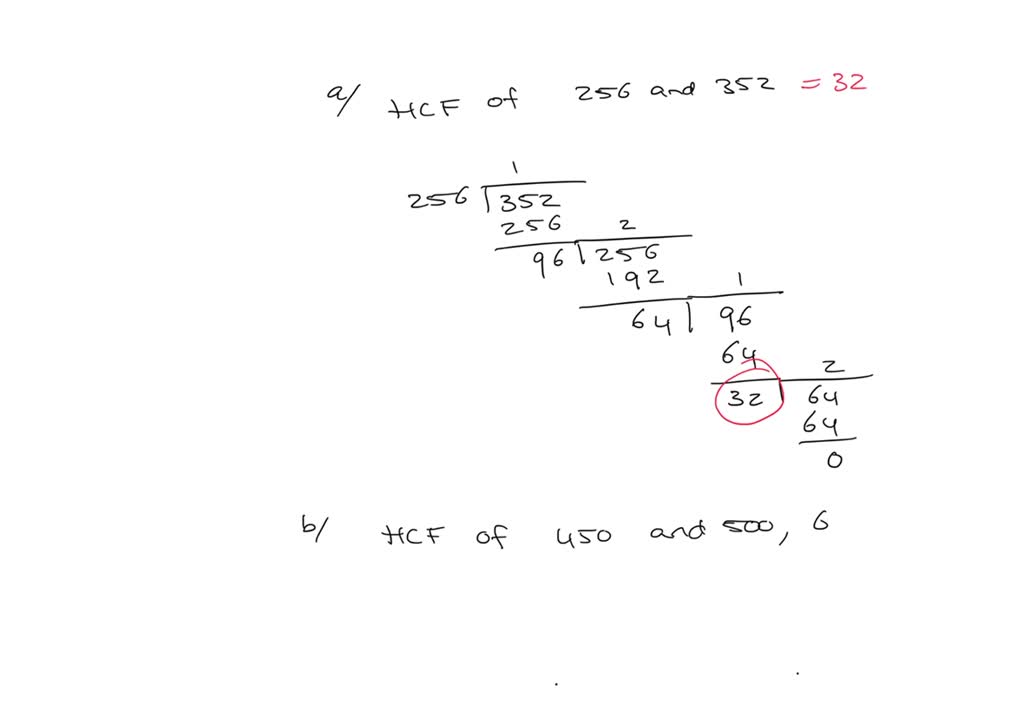 a/ HCF of 256 and 352 = 32
1
256 352
256 2
96 256
192 1
64 96
64 2
32 64
64
0
b/ HCF of 450 and 500, 6